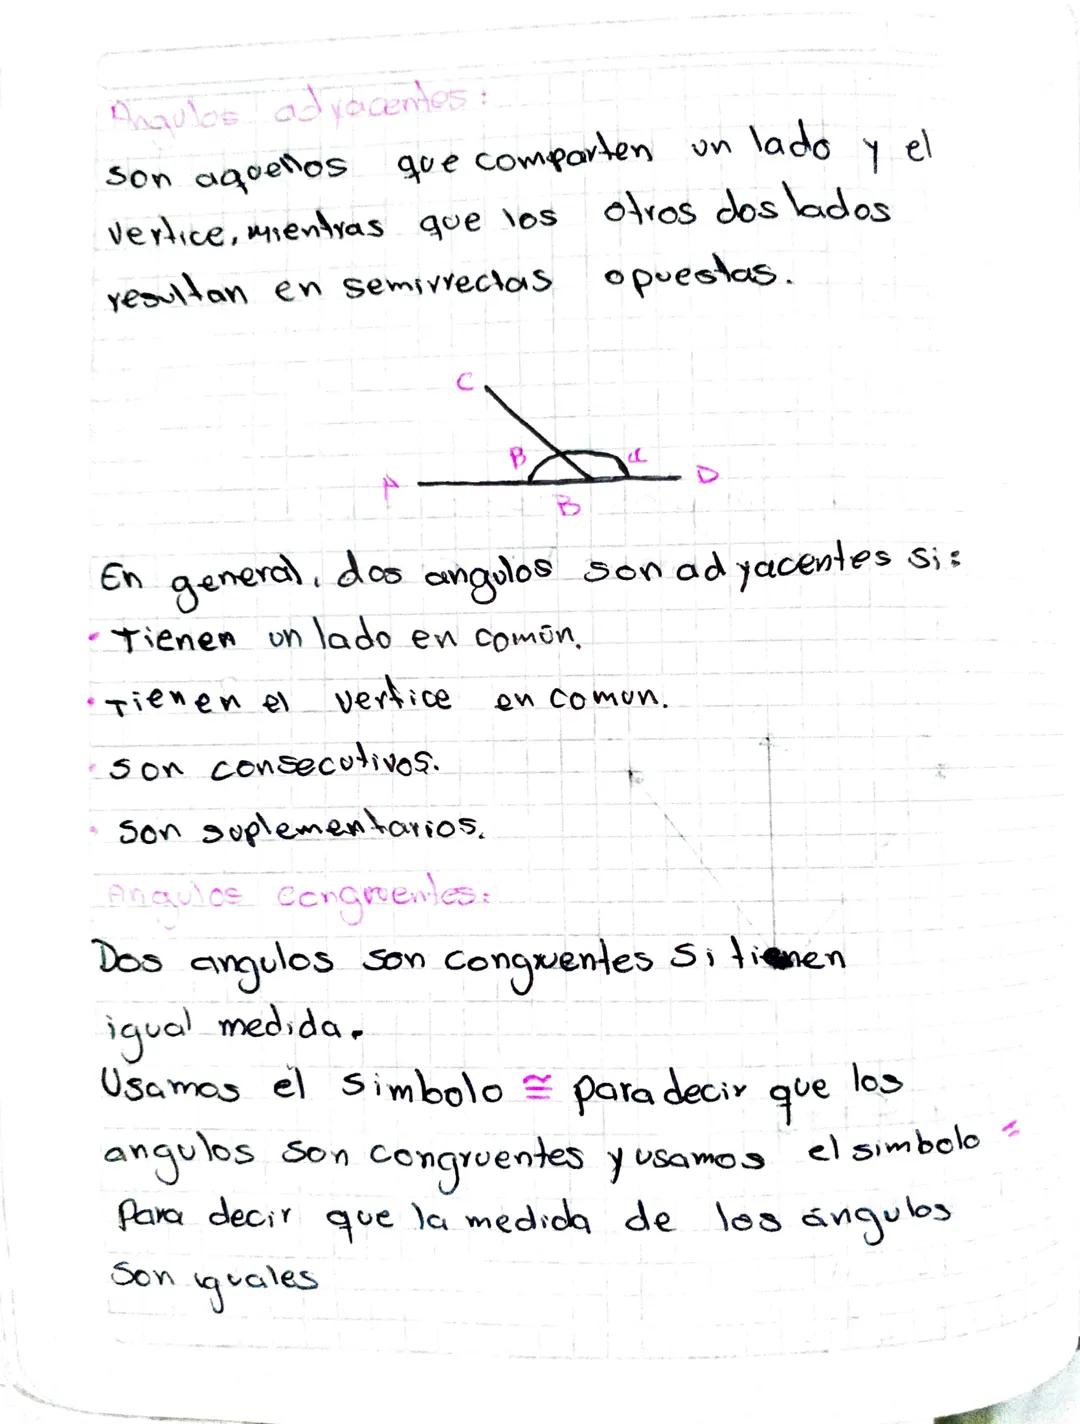 Angulos adyacentes:
son aquellos que comparten un lado y el
vertice, mientras que los otros dos lados
resultan en semirrectas opuestas.
C
B α
A D
B
En general, dos angulos son adyacentes si:
• Tienen un lado en común.
• Tienen el vertice en comun.
• son consecutivos.
• son suplementarios.
Angulos congruentes:
Dos angulos son congruentes si tienen
igual medida.
Usamos el simbolo ≅ para decir que los
angulos son congruentes y usamos el simbolo =
Para decir que la medida de los ángulos
son iguales